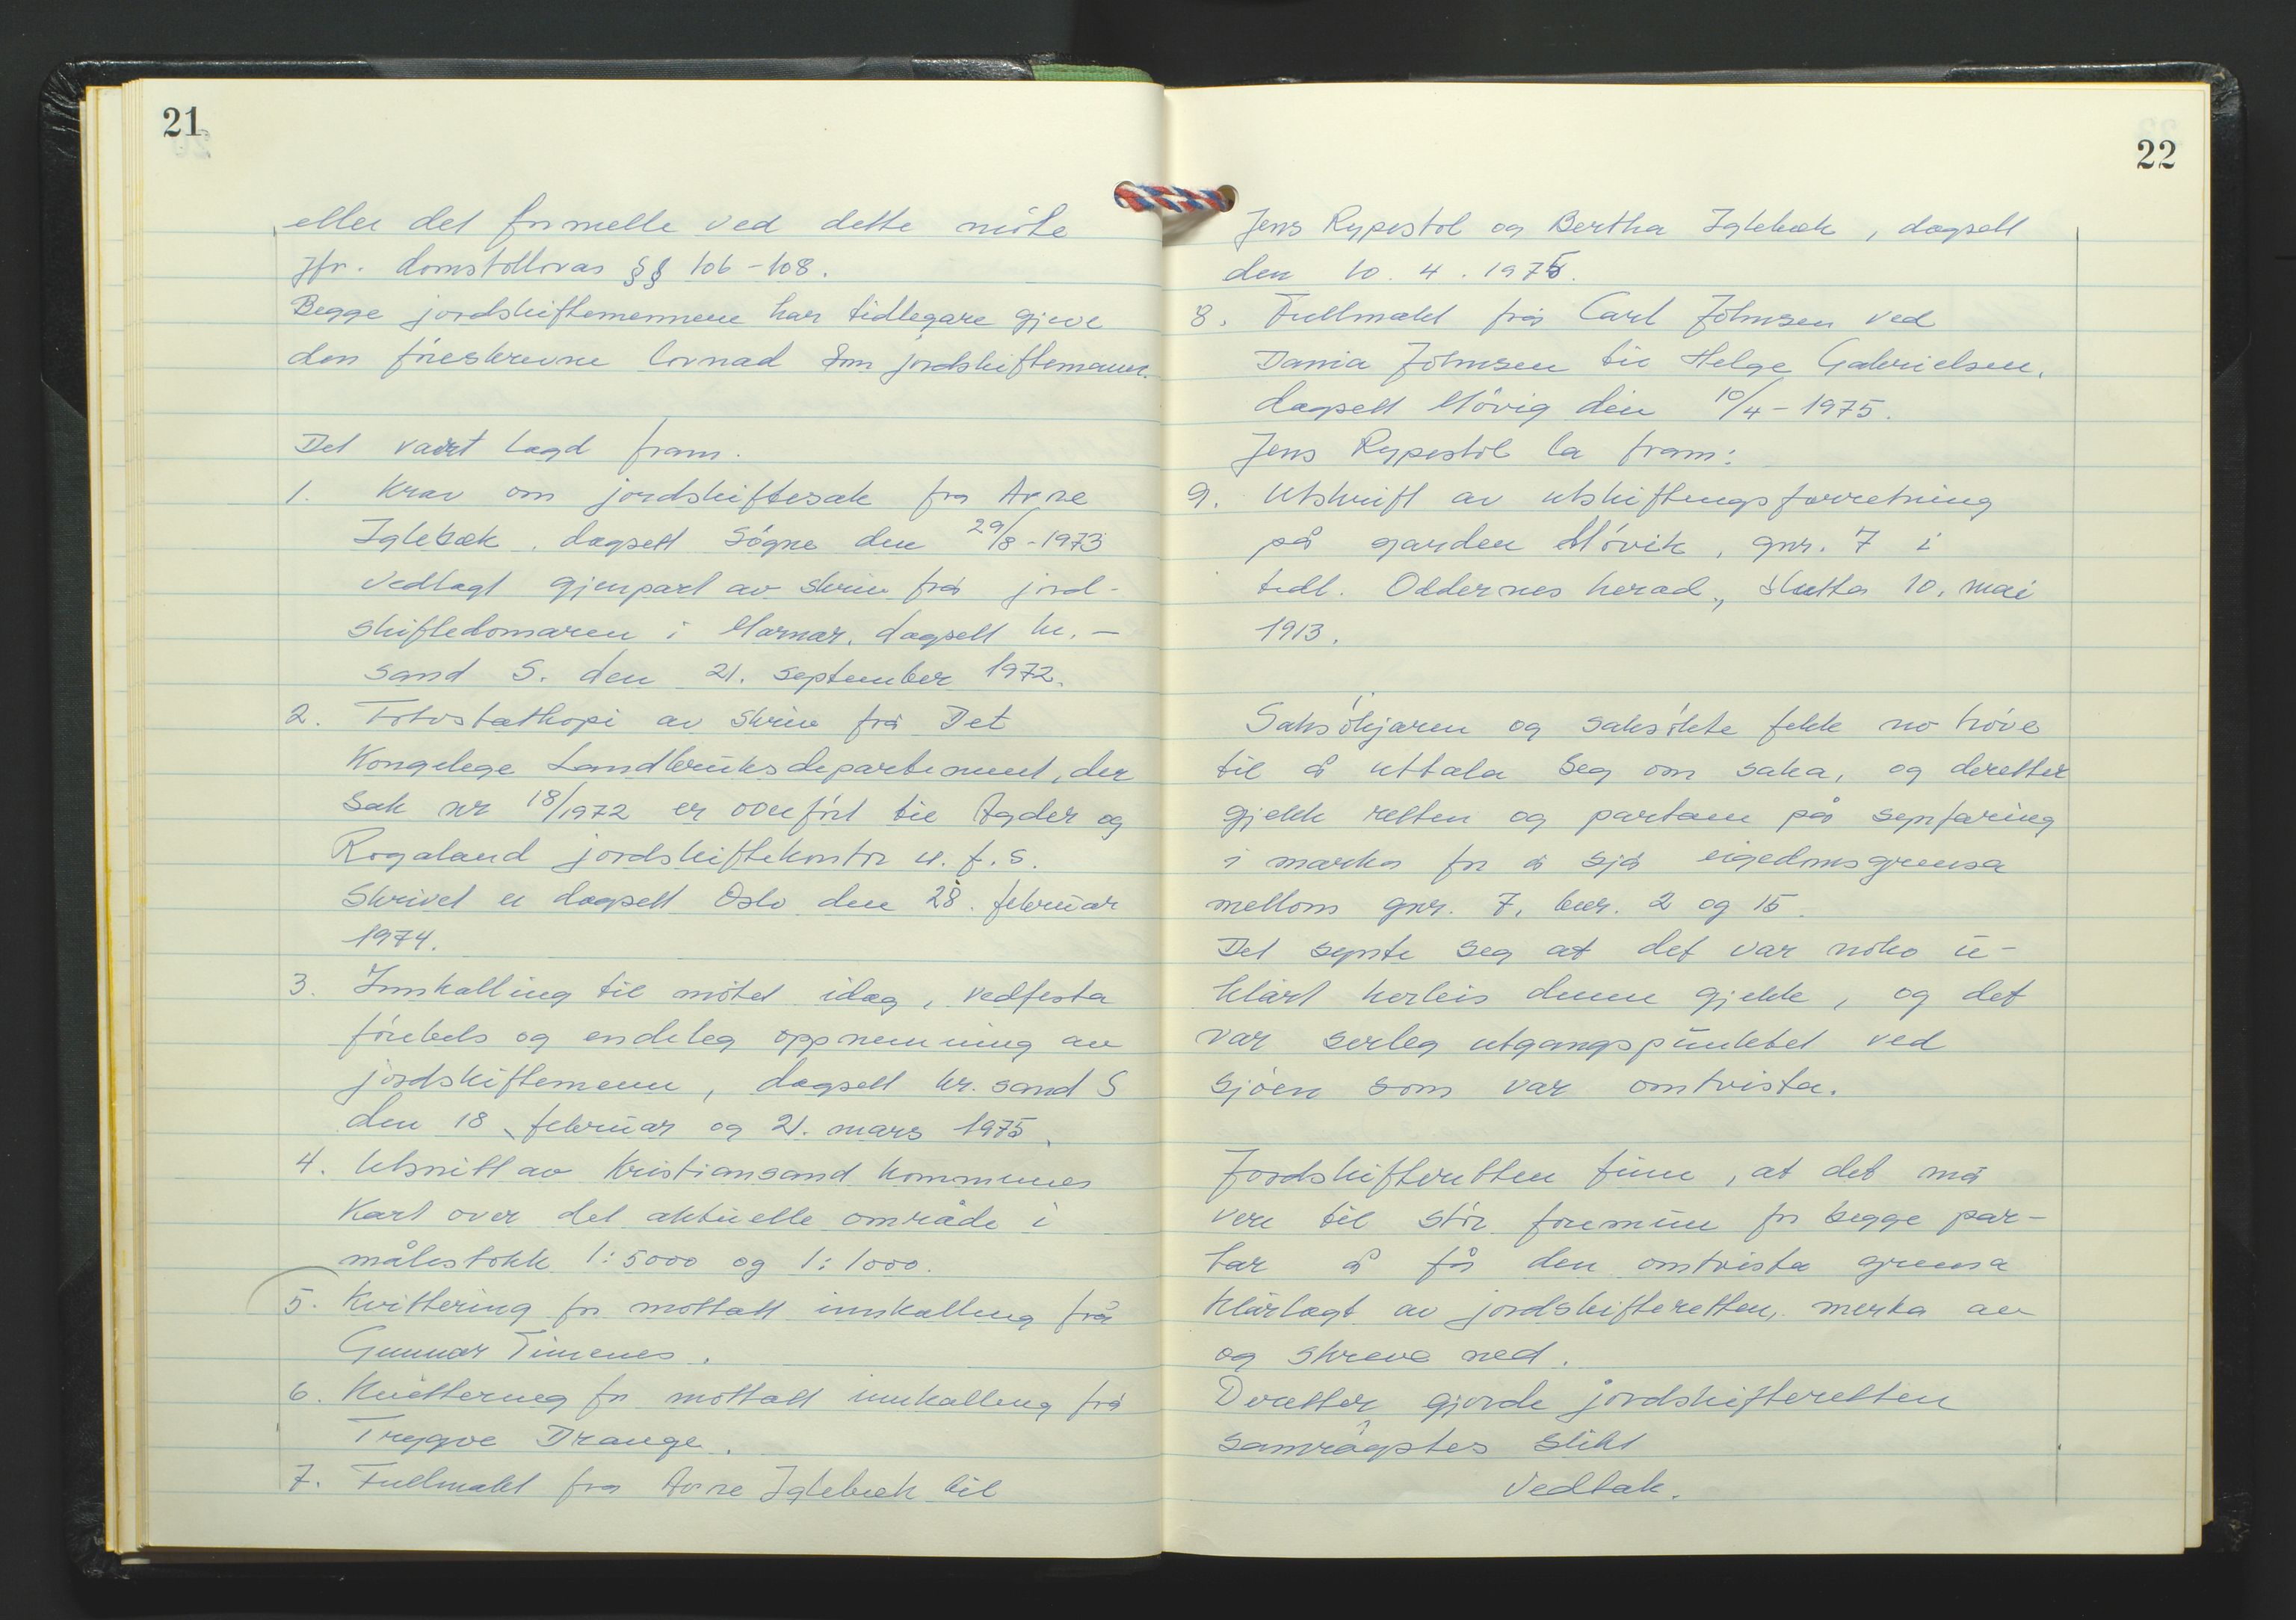 21
eller det formelle ved dette møte
jfr. domstollovas §§ 106-108.
Begge jordskiftemennene har tidlegare gjeve
den føreskrevne lovnad som jordskiftemann.
Det vart lagd fram.
1. Krav om jordskiftesak fra Arne
Iglebæk, dagsett Søgne den 29/8-1973
vedlagt gjenpart av skriv frå jord-
skiftedomaren i Marnar, dagsett kr.-
sand S. den 21. september 1972.
2. Fotostatkopi av skriv frå Det
Kongelege Landbruksdepartement, der
sak nr 18/1972 er overført til Agder og
Rogaland jordskiftekontor u.f.s.
Skrivet er dagsett Oslo den 28. februar
1974.
3. Innkalling til møtet idag, vedfesta
førebels og endeleg oppnemning av
jordskiftemenn, dagsett kr.sand S
den 18. februar og 21. mars 1975.
4. Utsnitt av Kristiansand kommunes
kart over det aktuelle område i
målestokk 1:5000 og 1:1000.
5. Kvittering for mottatt innkalling frå
Gunnar Timenes.
6. Kvittering for mottatt innkalling frå
Trygve Drange.
7. Fullmakt fra Arne Iglebæk til
22
Jens Rypestøl og Bertha Iglebæk, dagsett
den 10.4.1975.
8. Fullmakt frå Carl Johnsen ved
Dania Johnsen til Helge Gabrielsen,
dagsett Møvig den 10/4-1975.
Jens Rypestøl la fram:
9. Utskrift av utskiftingsforretning
på garden Møvik, gnr. 7 i
tidl. Oddernes herad, slutta 10. mai
1913.
Saksøkjaren og saksøkte fekk no høve
til å uttala seg om saka, og deretter
gjekk retten og partane på synfaring
i marka for å sjå eigedomsgrensa
mellom gnr. 7, bnr. 2 og 15.
Det synte seg at det var noko u-
klårt korleis denne gjekk, og det
var serleg utgangspunktet ved
sjøen som var omtvista.
Jordskifteretten finn, at det må
vere til stor føremun for begge par-
tar å få den omtvista grensa
klårlagt av jordskifteretten, merka av
og skreve ned.
Deretter gjorde jordskifteretten
samrøystes slikt
Vedtak.